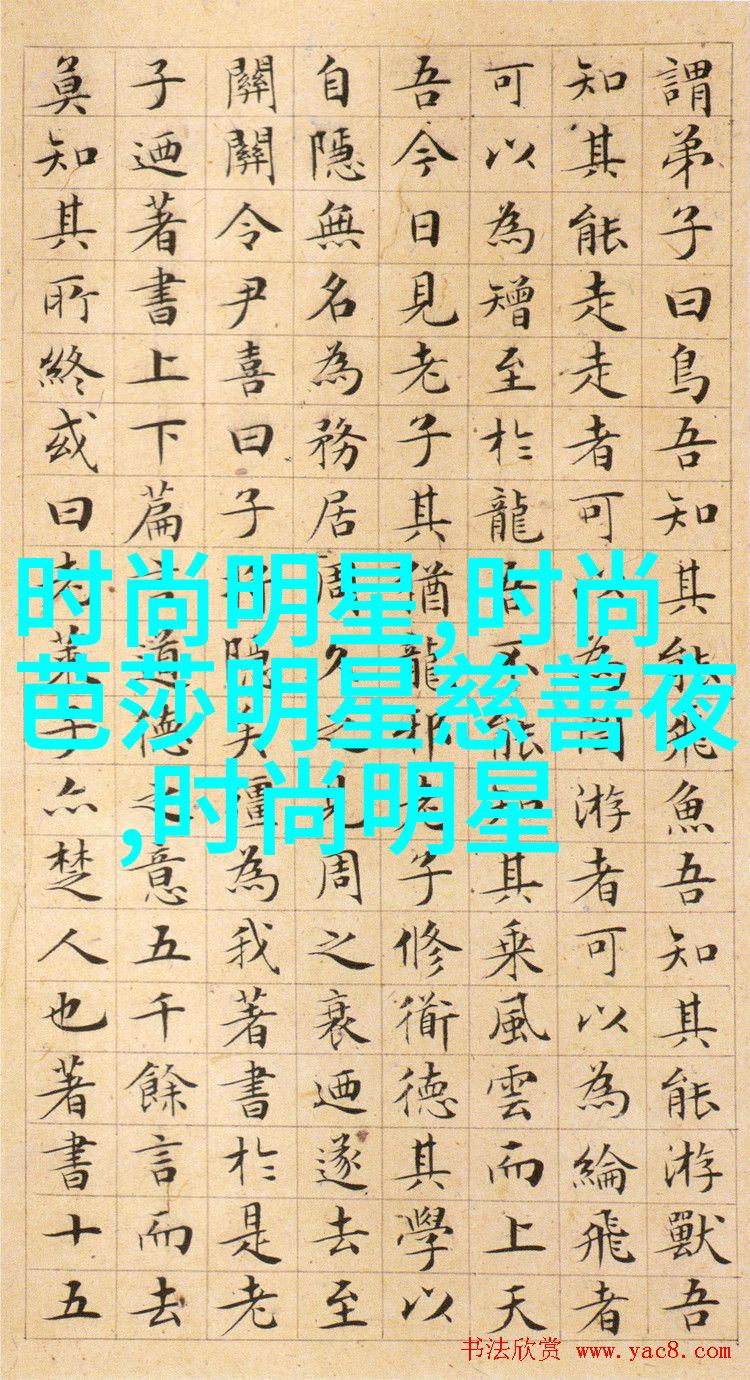 謂弟子曰鳥吾知其能飛魚吾知其能游獸吾
知其能走走者可以為罔游者可以為綸飛者
可以為矰至於龍吾不能知其乘風雲而上天
吾今日見老子其猶龍邪老子修衜德其學以
自隱無名為務居周久之見周之衰迺遂去至
關關令尹喜曰子將隱矣彊為我著書於是老
子迺著書上下篇言道德之意五千餘言而去
莫知其所終或曰老萊子亦楚人也著書十五
时尚明星,时尚
芭莎明星慈善夜
,时尚明星
书法欣赏 www.yac8.com